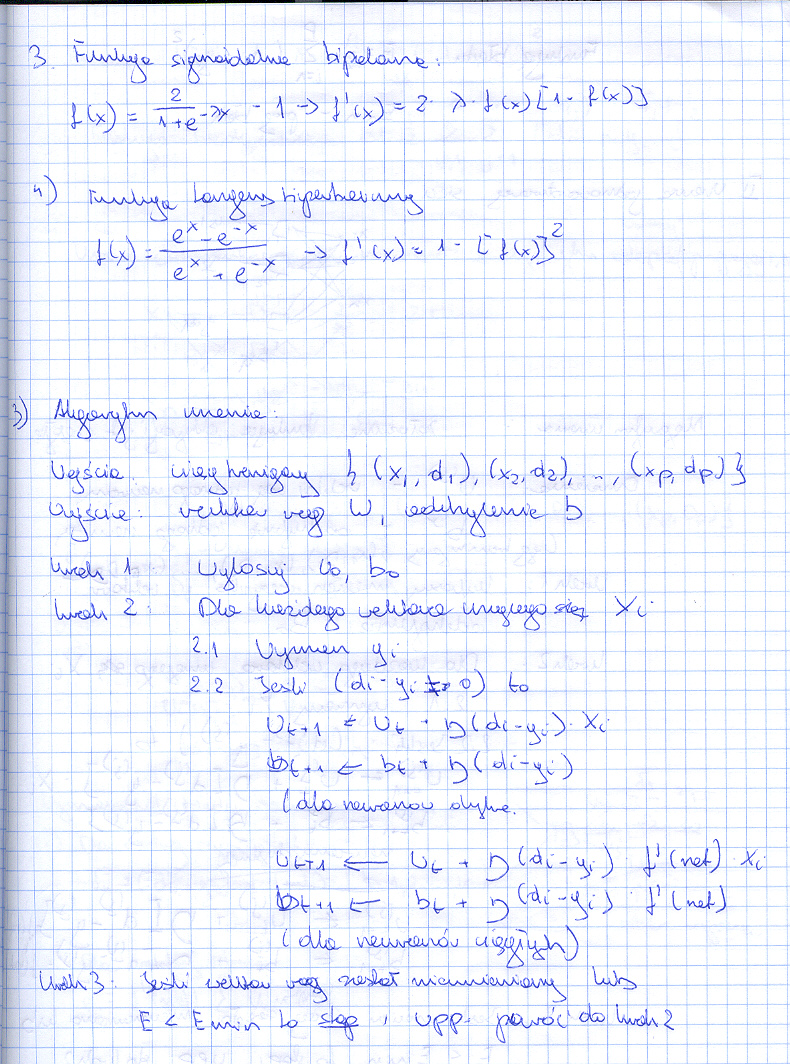 3. Funkcja sigmoidalna bipolarna:
f(x) = 2 / (1+e^-λx) - 1 → f'(x) = 2 · λ · f(x) [1 - f(x)]
4) Funkcja tangens hiperboliczny
f(x) = (e^x - e^-x) / (e^x + e^-x) → f'(x) = 1 - [f(x)]^2
3) Algorytm uczenia:
Wejście: ciąg treningowy { (x1, d1), (x2, d2), ..., (xp, dp) }
Wyjście: wektor wag W, odchylenie b
krok 1: Wylosuj W0, b0
krok 2: Dla każdego wektora uczącego się Xi
2.1 Wyznacz yi
2.2 Jeśli (di - yi ≠ 0) to
Wt+1 ← Wt + η(di-yi) · Xi
bt+1 ← bt + η(di-yi)
(dla neuronów dyskr.
Wt+1 ← Wt + η(di-yi) · f'(net) · xi
bt+1 ← bt + η(di-yi) · f'(net)
(dla neuronów ciągłych)
krok 3: Jeśli wektor wag został niezmieniony lub
E < Emin to stop, wpp. powróć do krok 2